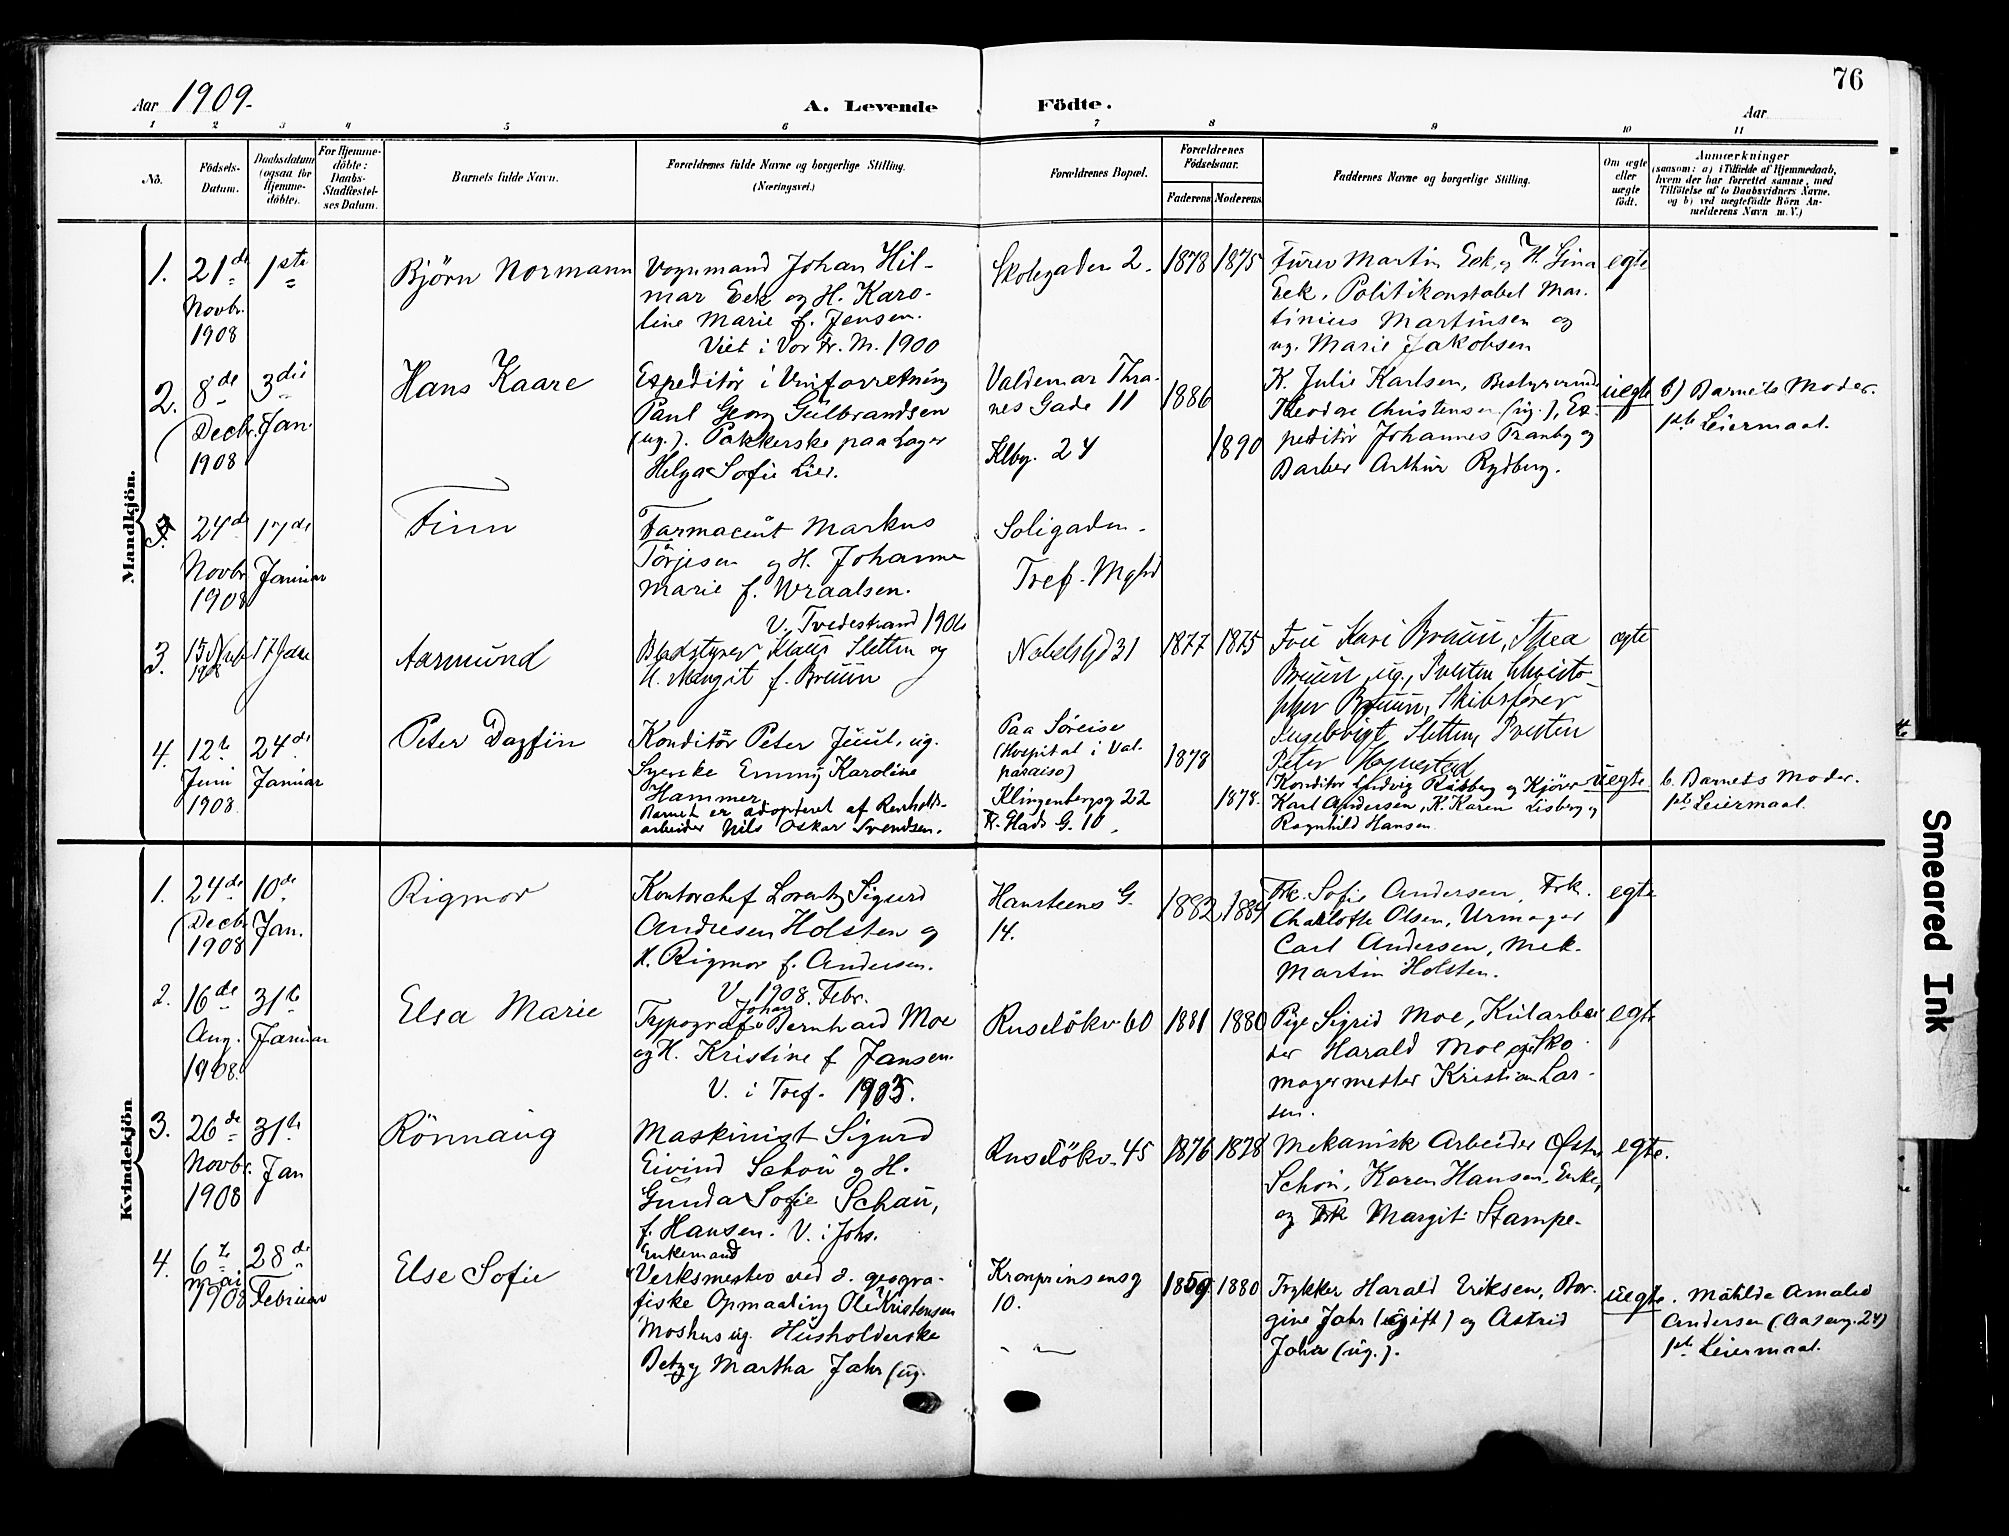 76
Aar 1909.
A. Levende Födte.
Aar
1 2 3 4 5 6 7 8 9 10 11
No.
Födsels-Datum.
Daabsdatum (ogsaa for Hjemme-döbte).
For Hjemme-döbte: Daabs-Stadfæstel-ses Datum.
Barnets fulde Navn.
Forældrenes fulde Navne og borgerlige Stilling.
(Næringsvei.)
Forældrenes Bopæl.
Forældrenes Födselsaar.
Faderens Moderens
Faddernes Navne og borgerlige Stilling.
Om ægte eller uægte födt.
Anmærkninger
(saasom: a) i Tilfælde af Hjemmedaab,
hvem der har forrettet samme, med
Tilföielse af to Daabsvidners Navne,
og b) ved uægtefödte Börn An-
melderens Navn m. V.)
Mandkjön.
1.
21de
Novbr.
1908
1ste
Björn Normann
Vognmand Johan Hil-
mar Eek og H. Karo-
line Marie f. Jensen.
Viet i Vor Fr. M. 1900
Skolegaden 2.
1878 1875
Furer Martin Eek, og H. Lina
Eek, Politikonstabel Mar-
tinius Martinsen og
ug. Marie Jakobsen
egte
2.
8de
Decbr.
1908
3die
Jan.
Hans Kaare
Expeditör i Vinforretning
Paul Georg Gulbrandsen
(ug.). Pakkerske paa Lager
Helga Sofie Lier.
Valdemar Thra-
nes Gade 11
Klbg. 24
1886
1890
K. Julie Karlsen, Bestyrerinde
Theodore Christensen (ug.), Ex-
peditör Johannes Tranby og
Barber Arthur Rydberg.
uegte
b) Barnets Moder.
1ste Leiermaal.
24de
Novbr.
1908
17de
Januar
Finn
Farmaceut Markus
Törjesen og H. Johanne
Marie f. Wraalsen.
V. Tvedestrand 1906
Soligaden.
Tref. Mghd
3.
15 Nov
1908
17 Jan
Aasmund
Bladstyrer Klaus Sletten og
H. Margit f. Bruun
Nobelsgd 31
1877 1875
Frue Kari Bruun, Thea
Bruun, ug., Presten Christo-
pher Bruun, Skibsfører
Ingebrigt Sletten, Presten
Peter Hognestad
egte
4.
12te
Juni
1908.
24de
Januar
Peter Dagfin
Konditör Peter Juul, ug.
Syerske Emmy Karoline
Hammer
Barnet er adopteret af Renholds-
arbeider Nils Oskar Svendsen.
Paa Søreise
(Hospital i Val-
paraiso)
Klingenbergsg 22
Fr. Glads G. 10.
1878
1878.
Konditor Ludvig Risberg og Kjörer
Karl Andersen, K. Karen Lisberg og
Ragnhild Hansen.
uegte
b. Barnets Moder.
1ste Leiermaal.
Kvindekjön
1.
24de
Decbr.
1908
10de
Jan.
Rigmor
Kontorchef Lorentz Sigurd
Andresen Holsten og
H. Rigmor f. Andersen.
V. 1908. Febr.
Hansteens G.
14.
1882 1884
Frk. Sofie Andersen, Frk.
Charlotte Olsen, Urmager
Carl Andersen, Mek.
Martin Holsten.
egte
2.
16de
Aug.
1908.
31te
Januar
Elsa Marie
Johan
Typograf Bernhard Moe
og H. Kristine f. Jansen.
V. i Tref. 1905.
Ruselökv. 60
1881 1880
Pige Sigrid Moe, Kularbei
der Harald Moe og Sko-
magermester Kristian Lar-
sen.
egte
3.
26de
Novbr.
1908
31te
Jan
Rönnaug
Maskinist Sigurd
Eivind Schou og H.
Gunda Sofie Schau,
f. Hansen. V. i Johs.
Ruselökv. 45
1876 1878
Mekanisk Arbeider Østen
Schou, Karen Hansen, Enke,
og Frk Margit Stampe.
egte.
4.
6te
Mai
1908
28de
Februar
Else Sofie
Enkemand
Verksmester ved d. geogra-
fiske Opmaaling Ole Kristensen
Moshus ug. Husholderske
Betzy Martha Jahr (ug.
Kronprinsensg
10.
— " —
1859 1880
Trykker Harald Eriksen, Bor-
gine Jahr (ugift) og Astrid
Jahr (ug.).
uegte.
Mathilde Amalie
Andersen (Aaseng. 24)
1ste Leiermaal.
Smeared Ink